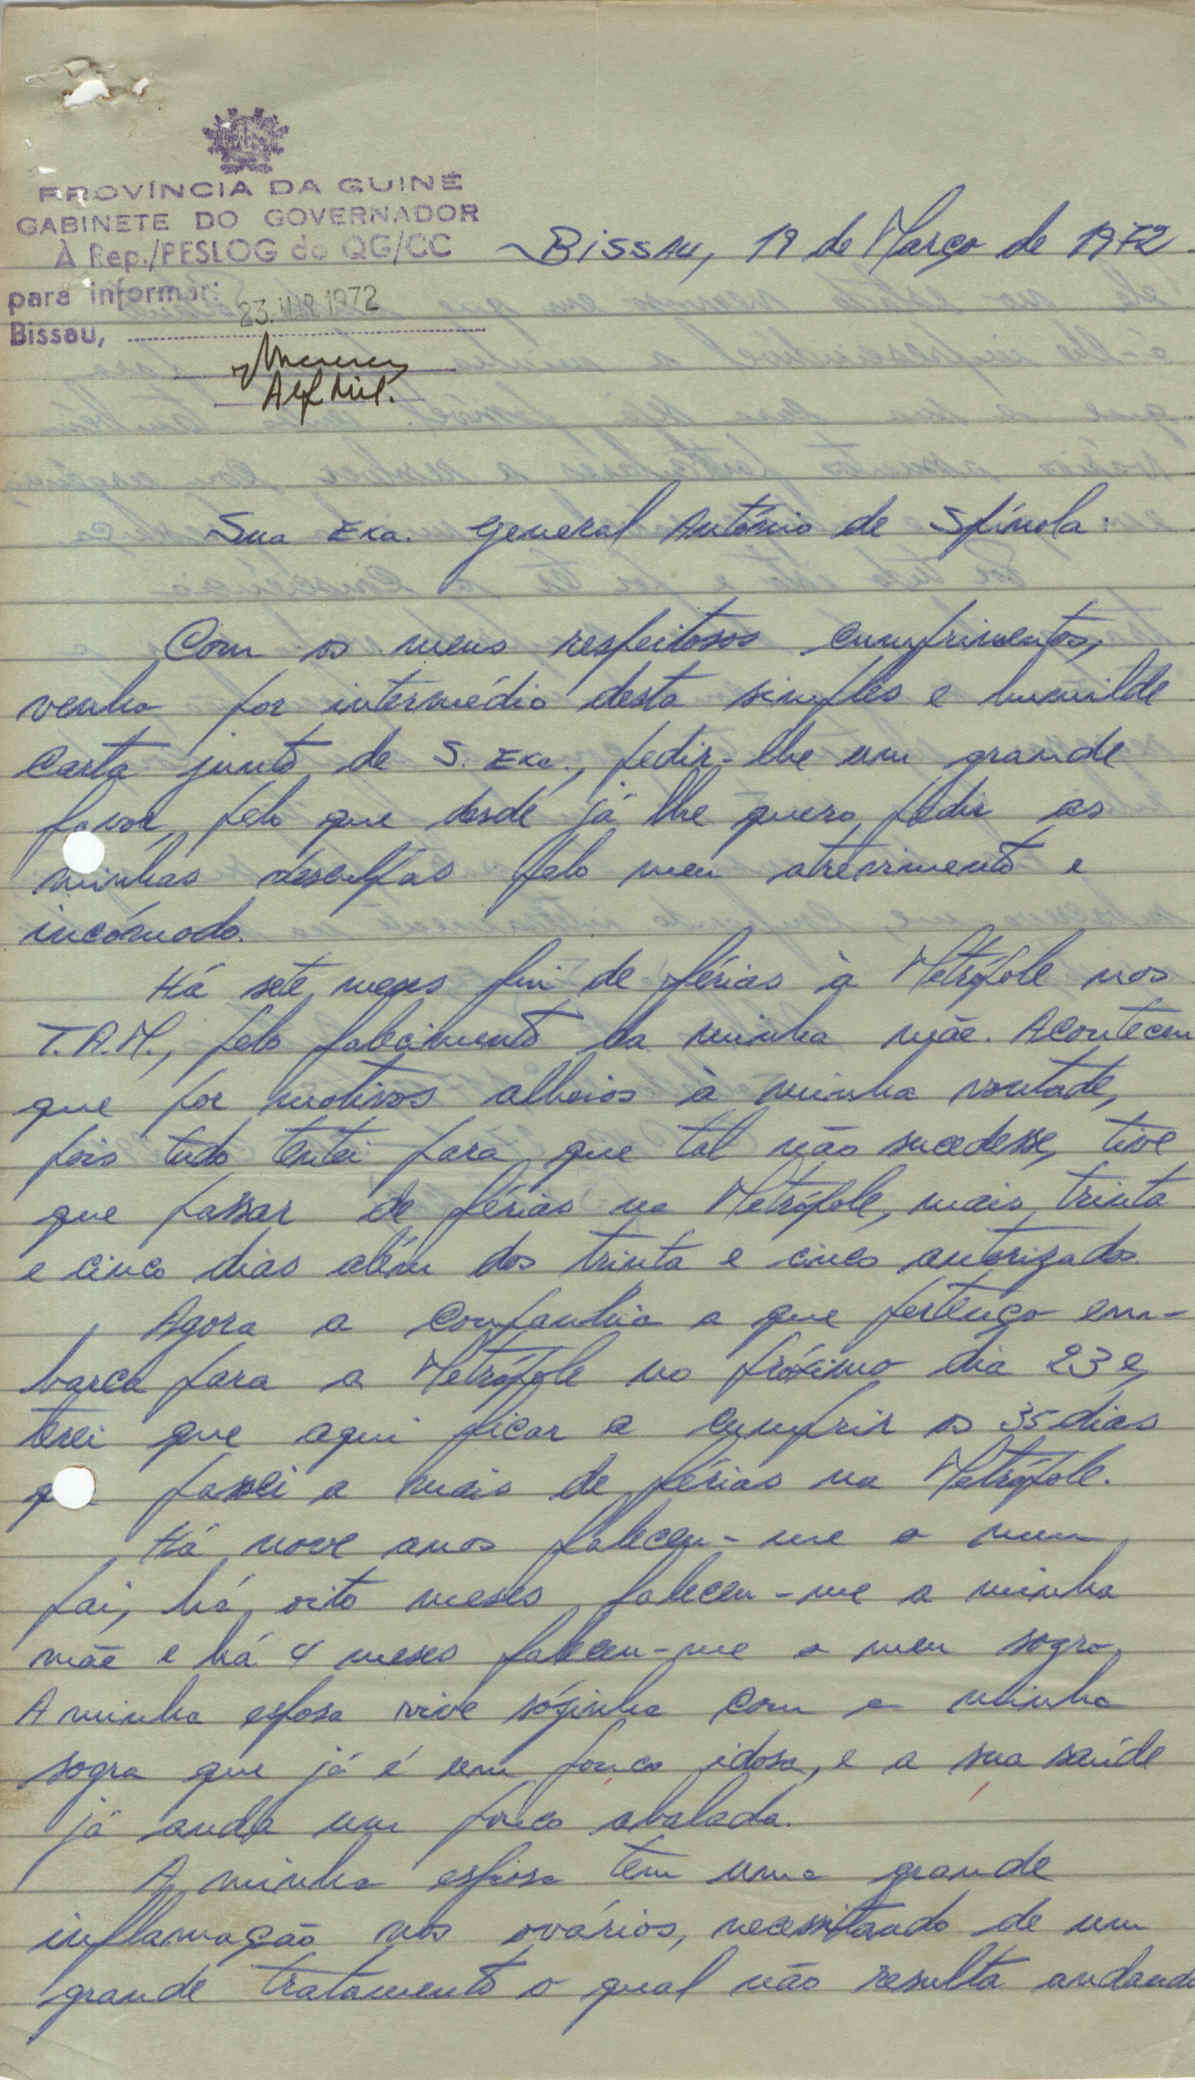 PROVÍNCIA DA GUINÉ
GABINETE DO GOVERNADOR
À Rep./PESLOG do QG/CC
para informar:
23. MAR. 1972
Bissau,
Alf Mil.
Bissau, 19 de Março de 1972.
Sua Exa. General António de Spínola:
Com os meus respeitosos cumprimentos,
venho por intermédio desta simples e humilde
carta junto de S. Exa., pedir-lhe um grande
favor, pelo que desde já lhe quero pedir as
minhas desculpas pelo meu atrevimento e
incómodo.
Há sete meses fui de férias à Metrópole nos
T.A.M., pelo falecimento da minha mãe. Aconteceu
que por motivos alheios à minha vontade,
pois tudo tentei para que tal não sucedesse, tive
que passar de férias na Metrópole, mais trinta
e cinco dias além dos trinta e cinco autorizados.
Agora a Companhia a que pertenço em-
barca para a Metrópole no próximo dia 23 e,
terei que aqui ficar a cumprir os 35 dias
passei a mais de férias na Metrópole.
Há nove anos faleceu-me o meu
pai, há oito meses faleceu-me a minha
mãe e há 4 meses faleceu-me o meu sogro.
A minha esposa vive sózinha com a minha
sogra que já é um pouco idosa, e a sua saúde
já anda um pouco abalada.
A minha esposa tem uma grande
inflamação nos ovários, necessitando de um
grande tratamento o qual não resulta andando